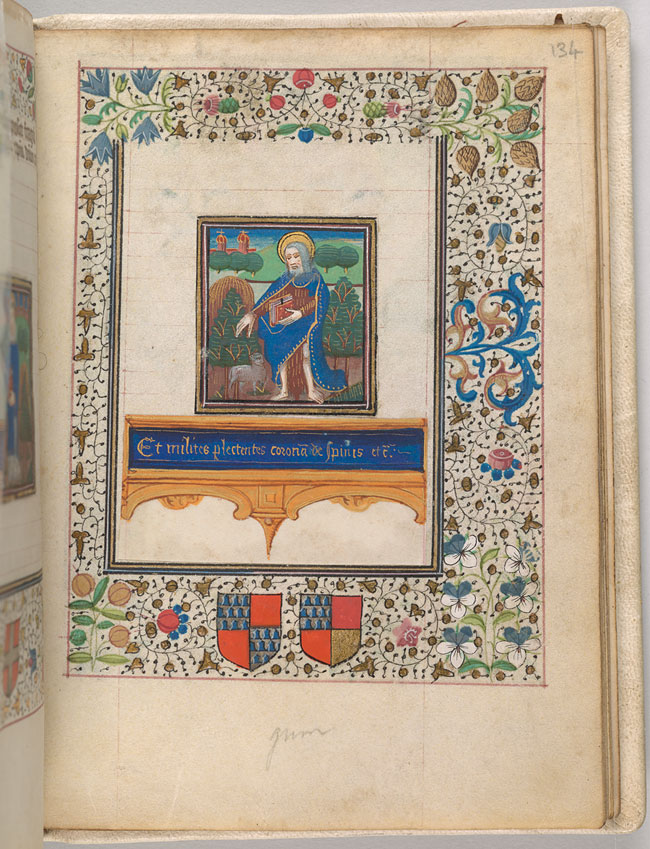 134
Et milites plectentes coronā de spinis etc̄.